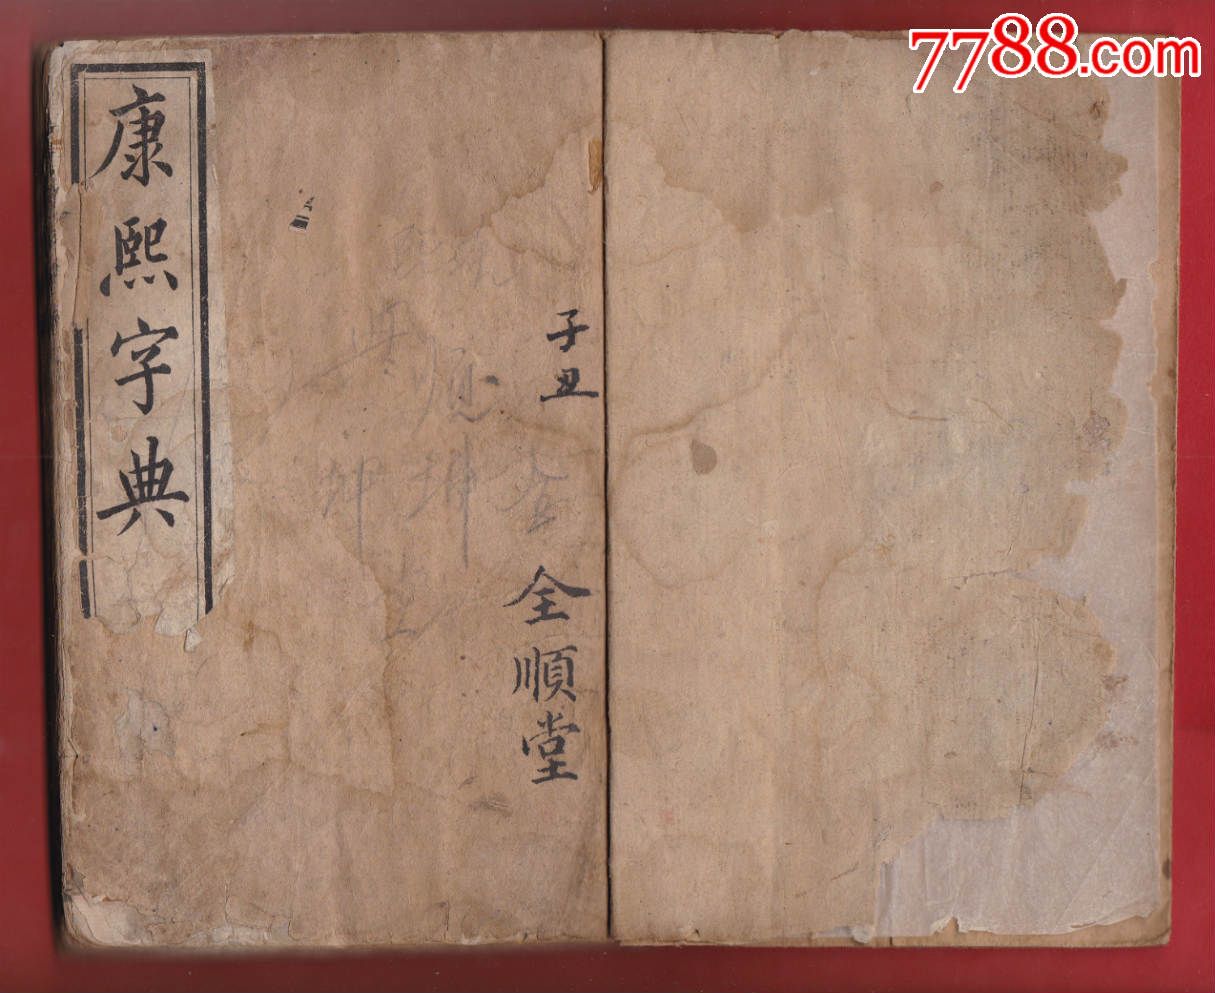 7788.com
康熙字典
子丑
全順堂